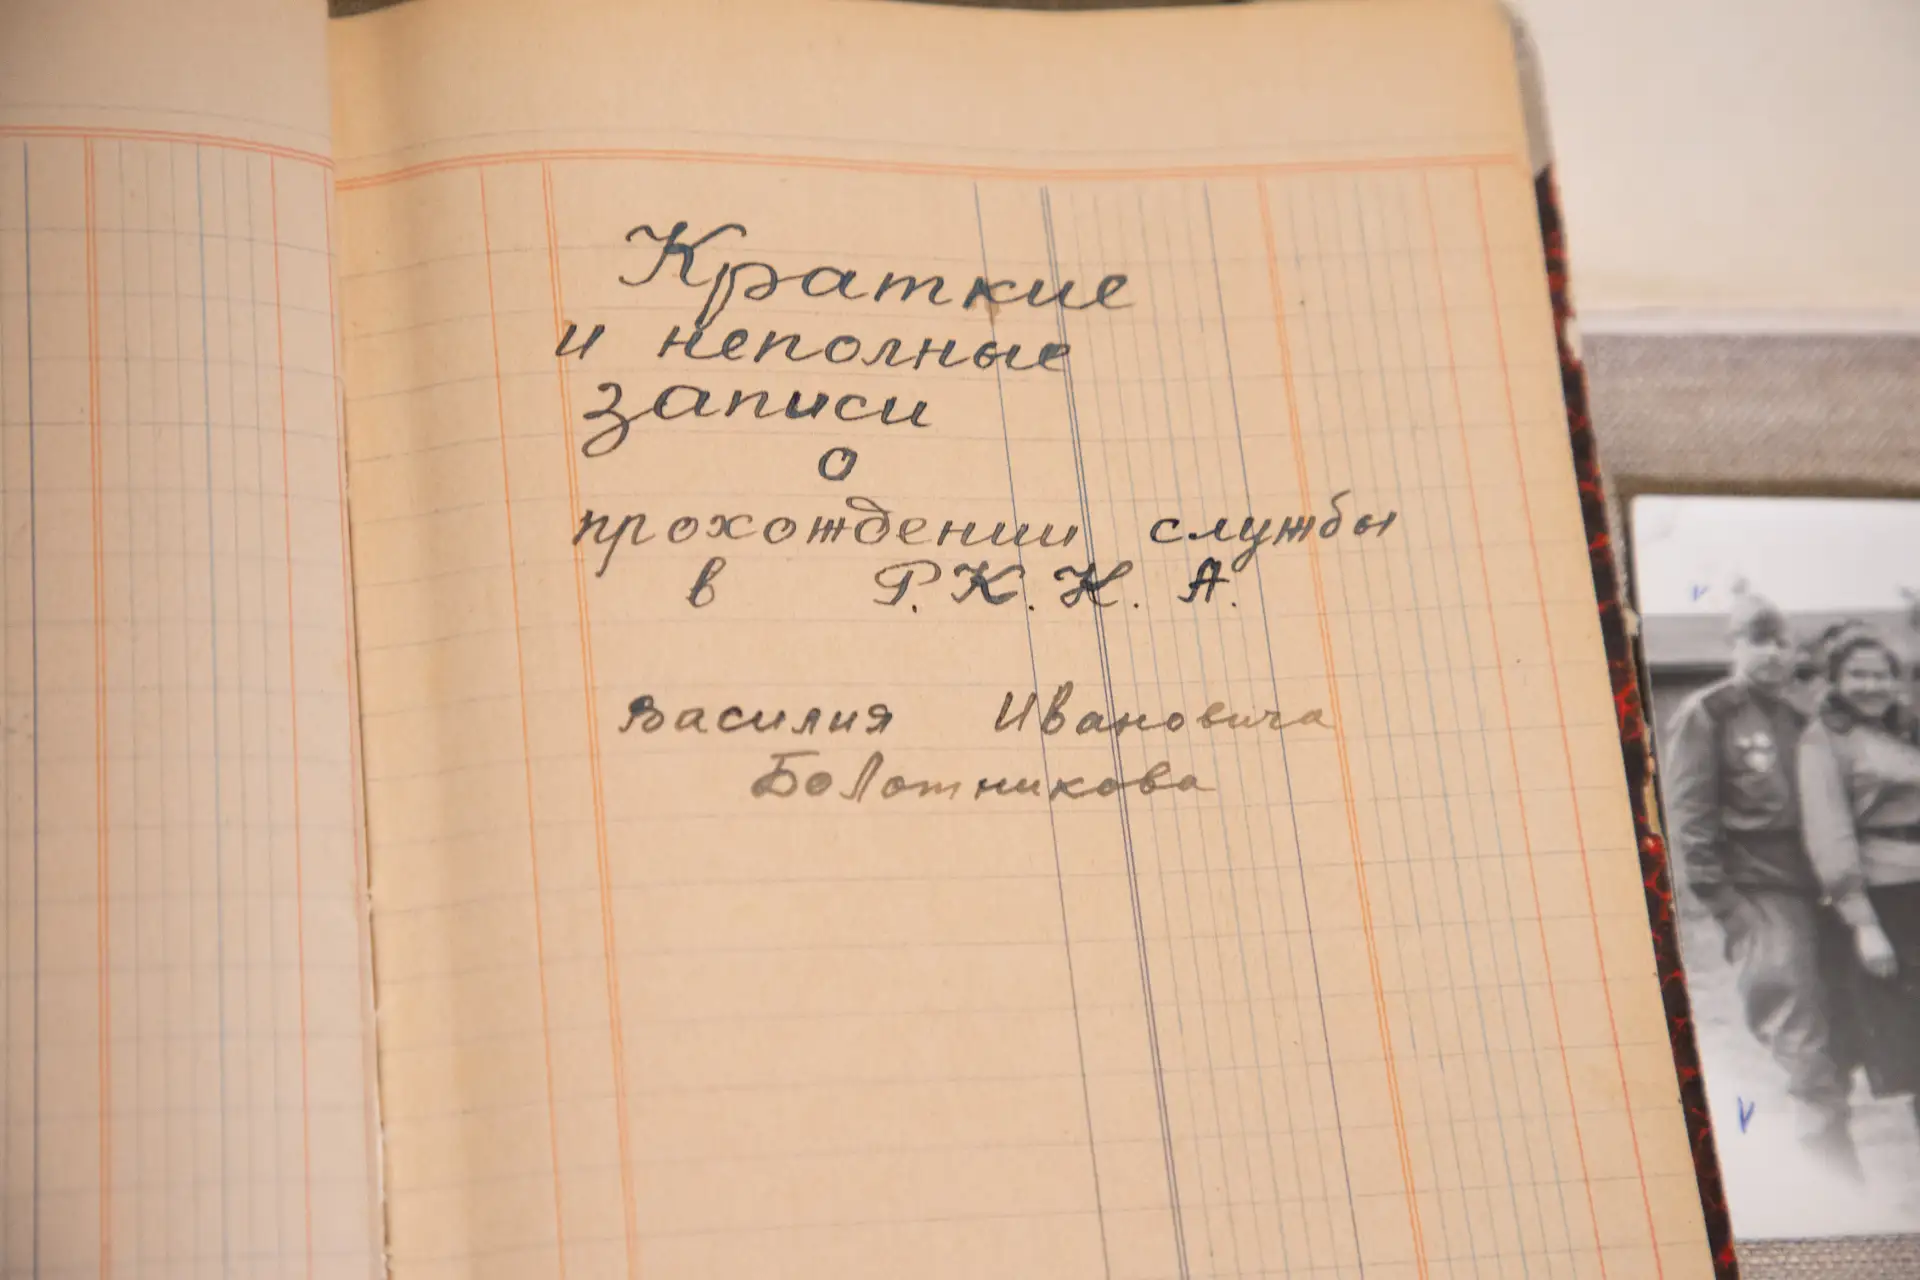 Краткие
и неполные
записи
о
прохождении службы
в Р.К.К.А.
Василия Ивановича
Болотникова